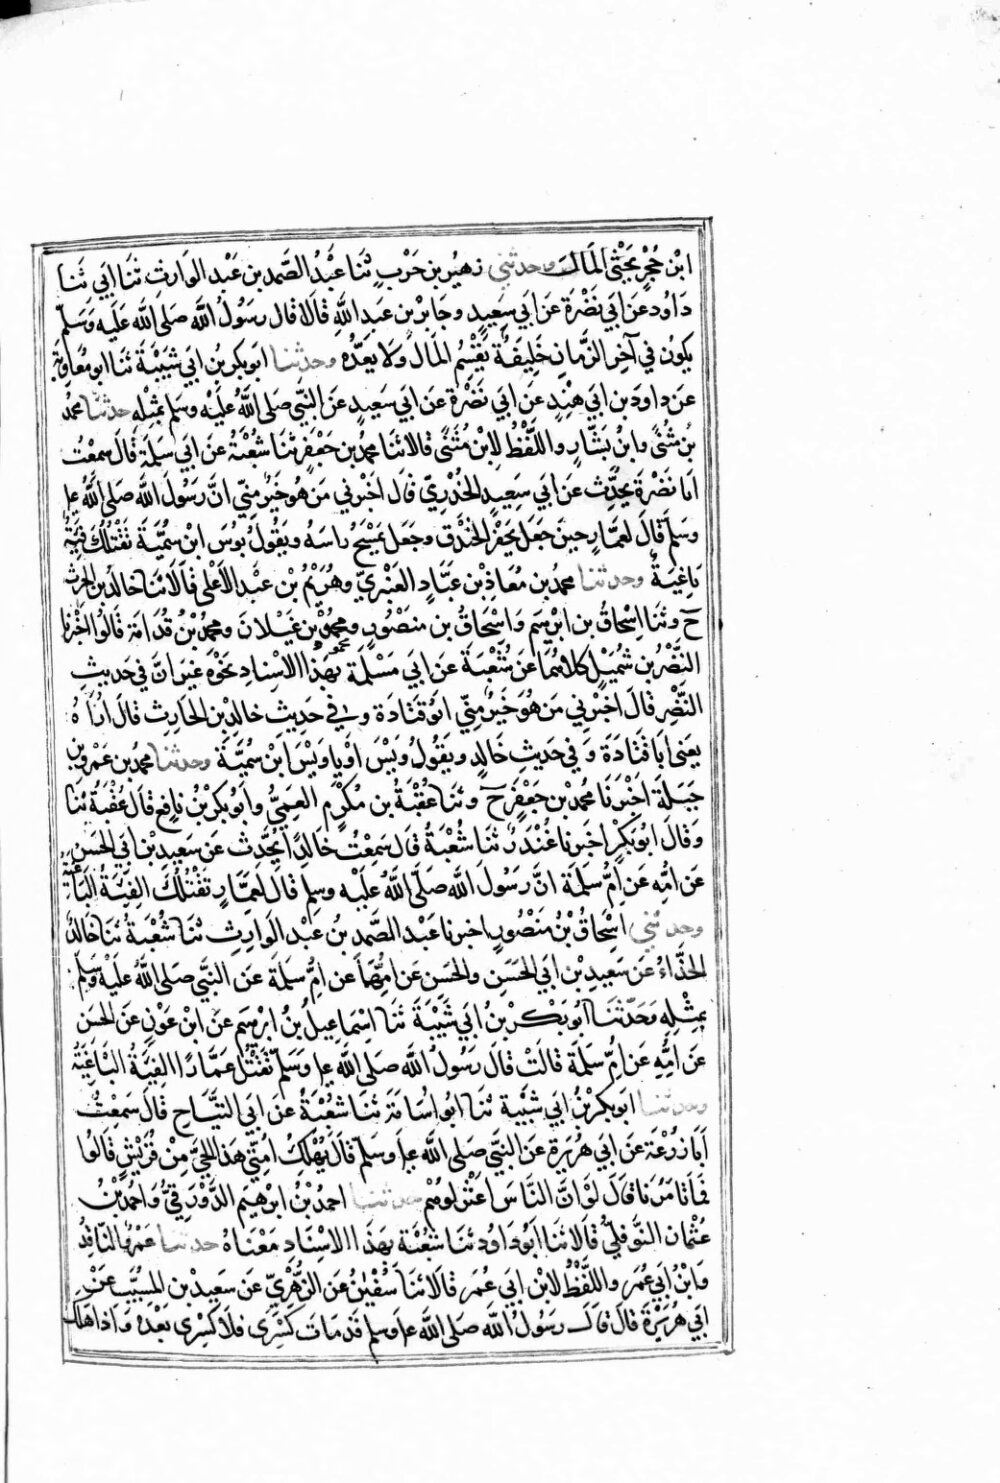 ابْن حُجْرٍ يَحْثِي المَالَ وحدثني زهير بن حَرْبٍ ثنا عَبْدُ الصَّمد بن عَبْد الوارث ثَنَا ابي ثَنا
داوُد عَن ابي نَضْرَةَ عَن ابي سَعِيدٍ وجَابِر بْن عَبد اللهِ قَالا قال رَسُولُ اللَّه صلى الله عَلَيه وَسَلم
يكون في آخِرِ الزَّمانِ خَلِيفَةٌ يَقْسِمُ المَالَ ولا يعَدّه وحدثنا ابو بكر بن ابي شَيْبَةَ ثنا ابو معاوية
عَن داودَ بن ابي هِنْدٍ عَن ابي نَضْرَةَ عَن ابي سَعِيدٍ عَن النَّبي صلى اللهُ عَلَيْه وسَلم بمثِلِهِ حدثنا محمد
بْن مُثَنًّى وابْن بَشَّارٍ واللَّفْظُ لِابْن مُثَنَّى قالا ثنا محمد بن جَعْفَرٍ ثنا شُعْبَةُ عَن ابي مسلمة قَالَ سمِعْتُ
ابا نَضْرَةَ يحَدِّث عَن ابي سَعِيدٍ الخُدْرِيّ قَال اخْبَرني مَن هُوَ خَيْرٌ مِنّي انَّ رَسُولَ اللَّه صلى اللهُ علي
وسَلم قَالَ لعَمَّارٍ حِينَ جَعَلَ يَحْفِرُ الخَنْدَق وجَعَل يمْسَحُ راسَهُ ويَقُولُ بُوسَ ابْن سُمَيَّةَ تَقْتُلُكَ فِئَةٌ
بَاغِيَةٌ وحدثنا محمد بن مُعَاذِ بْن عبَّادٍ العَنْبَرِيّ وهُرَيْمُ بْن عَبْد الاعْلى قَالا ثنا خالد بن الحرث
ح وثنا اسْحاق بن ابرهيم واسْحَاقُ بن منصُورٍ ومحمود بن غَيْلانَ ومحمد بْن قُدَامَةَ قَالُوا اخْبرنا
النَّضْر بن شُمَيْلٍ كلاهُمَا عَن شُعْبَةَ عَن ابي مَسْلَمَةَ بهَذا الاسْنادِ نَحْوَهُ غَيْرَ انَّ في حَديثِ
النَّضْرِ قَالَ اخْبَرني مَن هُوَ خَيْرٌ مِنّي ابُو قَتَادَةَ وفي حَدِيثِ خالدِ بْن الحَارِثِ قالَ ارَاهُ
يعنى ابا قَتَادَةَ وفي حَديثِ خَالدٍ ويقُولُ وَيْسَ اوْ يا وَيْسَ ابْن سُمَيَّةَ وحدثنا محمد بن عَمْرو بن
جَبَلَةَ اخْبرَنَا محمد بْن جَعْفَرٍ ح وثنا عُقْبَةُ بن مُكْرَمٍ العَمِّيُّ وابُو بكر بْنُ نَافِعٍ قالَ عُقْبَةُ ثنا
وقَالَ ابُو بَكْرٍ اخبرنا غُنْدَرٌ ثنا شُعْبَةُ قَال سَمِعْتُ خَالدًا يُحَدِّث عَن سَعِيدِ بْن ابي الحَسَن
عَن امِّهِ عَن امِّ سَلَمةَ انَّ رَسُولَ اللَّه صَلَّى اللَّهُ عَلَيْه وسلم قَالَ لعَمَّارٍ تَقْتُلُكَ الفِئَةُ البَاغِيَةُ
وحدثني اسْحَاقُ بْن مَنْصُورٍ اخبرنا عَبْد الصَّمَد بن عَبْد الوَارِثِ ثنا شُعْبَةُ ثَنَا خالدٌ
الحَذَّاءُ عَن سَعِيدِ بْن ابي الحَسَن والحَسَن عَن امِّهِمَا عَن امِّ سَلَمَةَ عَن النَّبي صلى اللَّهُ عَلَيْهِ وَسَلَّم
بمثِلِهِ وَحَدَّثنا ابُو بَكْر بْن ابي شَيْبَةَ ثنا اسْمَاعِيل بْنُ ابرهيم عَن ابْن عَوْنٍ عَن الحَسَن
عَن امِّهِ عَن امِّ سَلَمةَ قالَتْ قَالَ رَسُولُ اللَّه صَلى اللَّه علي وَسَلَّم تَقْتُلُ عَمَّارًا الفِئَةُ البَاغِيَةُ
وحدثنا ابو بَكر بْنُ ابي شيْبَة ثنا ابُو اسَامَةَ ثنا شُعْبَةُ عَن ابي التَّيَّاح قَالَ سَمِعْتُ
ابَا زُرْعَةَ عَن ابي هُرَيْرَةَ عَن النَّبيّ صَلى الله علي وسَلم قَال يُهْلِكُ امَّتِي هَذَا الحَيُّ مِنْ قُرَيْشٍ قَالُوا
فمَا تَامُرُنَا قَالَ لَوْ انَّ النَّاسَ اعْتَزلُوهُمْ حدثنا احمدُ بْنُ ابْرهيم الدَّوْرَقيُّ وَاحمد بْنُ
عُثْمان النَّوفَليُّ قَالا ثنا ابُو داود ثنا شُعْبَة بهَذا الاسْنَادِ مَعْنَاهُ حدثنا عَمْرٌو النَّاقِدُ
وابْنُ ابي عُمَر واللَّفْظُ لابْن ابي عُمَر قَالا ثنا سُفْيَانُ عَن الزُّهْرِيّ عَن سَعِيد بْن المسَيَّب عَنْ
ابي هُرَيْرَةَ قَالَ قَالَ رَسُولُ اللَّه صَلى اللَّه علي وسلم قَد مَات كِسْرَى فلا كِسْرى بَعْدَهُ وَاذا هَلَكَ